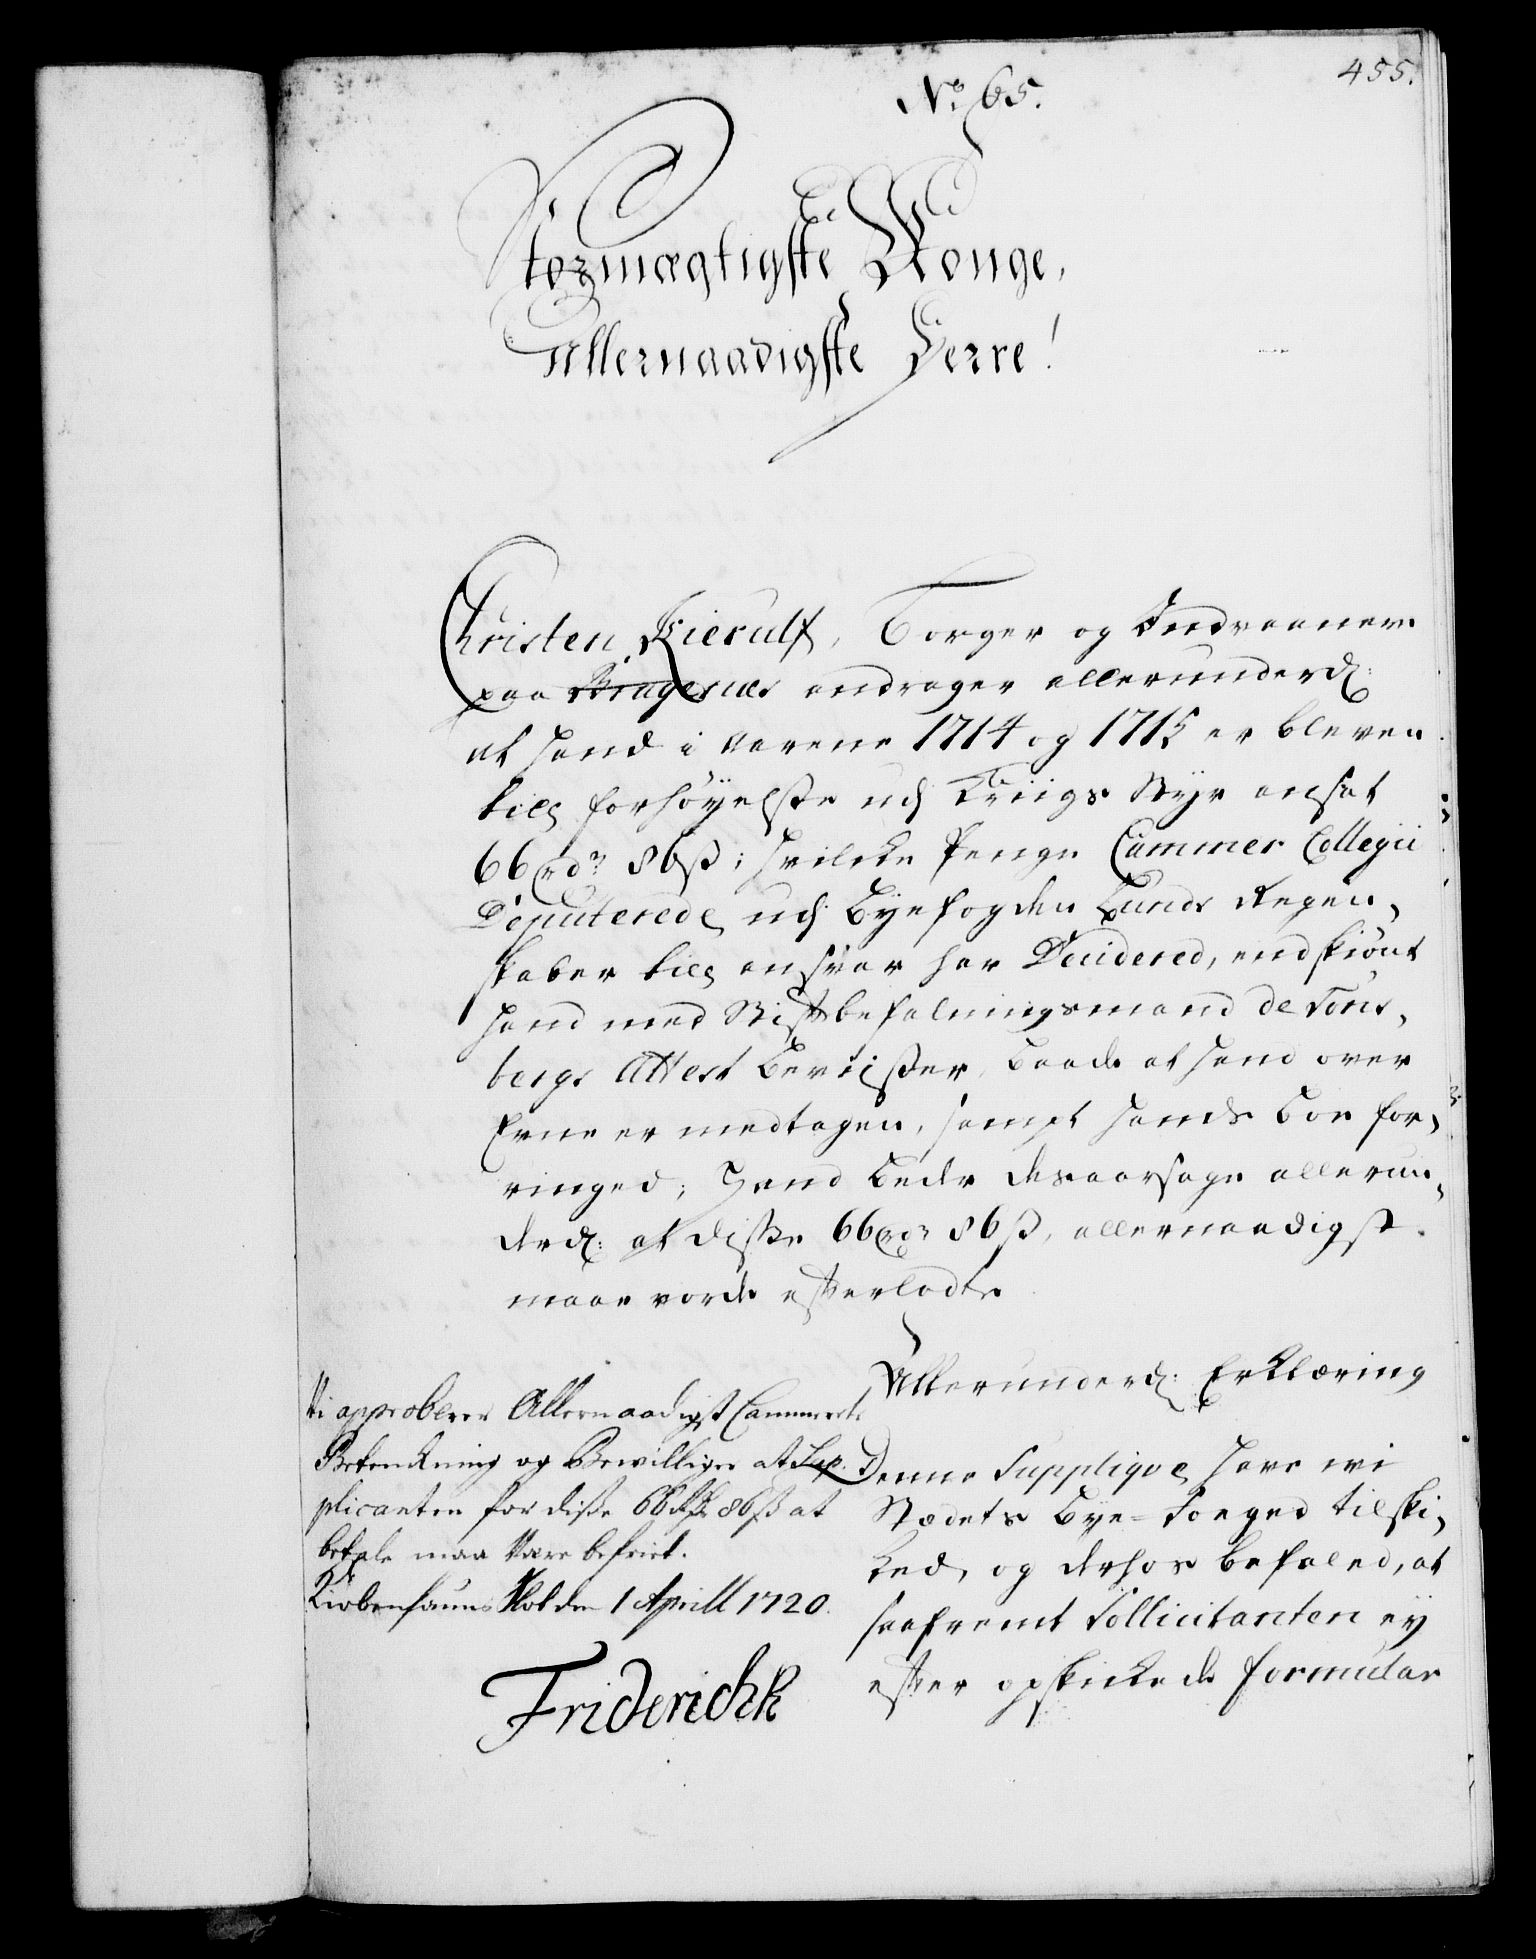 455.
No. 65.
Stormægtigste Konge,
Allernaadigste Herre!
Christen Kierulf, Borger og Indvaaner
paa Bragernæs andrager allerunderd:
at hand i Aarene 1714 og 1715 er bleven
till forhöyelsse udj Kriigs Styr ansat
66 rdr 86 ß; hvilcke Penge Cammer Collegii
Deputerede udj Byefogden Lunds Regen-
skaber till ansvar har Decidered, endskiönt
hand med Stiftbefalningsmand de Tons-
bergs Attest beviisser, baade at hand over
Evne er medtagen, sampt hands boe for-
ringed; Hand beder desaarsage allerun-
derd: at disse 66 rdr 86 ß, allernaadigst
maae vorde efterladte
Allerunderd: Erklæring
Denne Supplique have vi
Stædets Bye-Foeged tilski-
ked, og derhos befaled, at
saafremt Sollicitanten ey
efter opskickede formular
Vi approberer Allernaadigst Cammerets
Betenkning og Bewilliger at Sup-
plicanten for disse 66 Rdr 86 ß at
betale maa være befriet.
Kiöbenhauns Slot den 1 Aprill 1720.
Friderich R